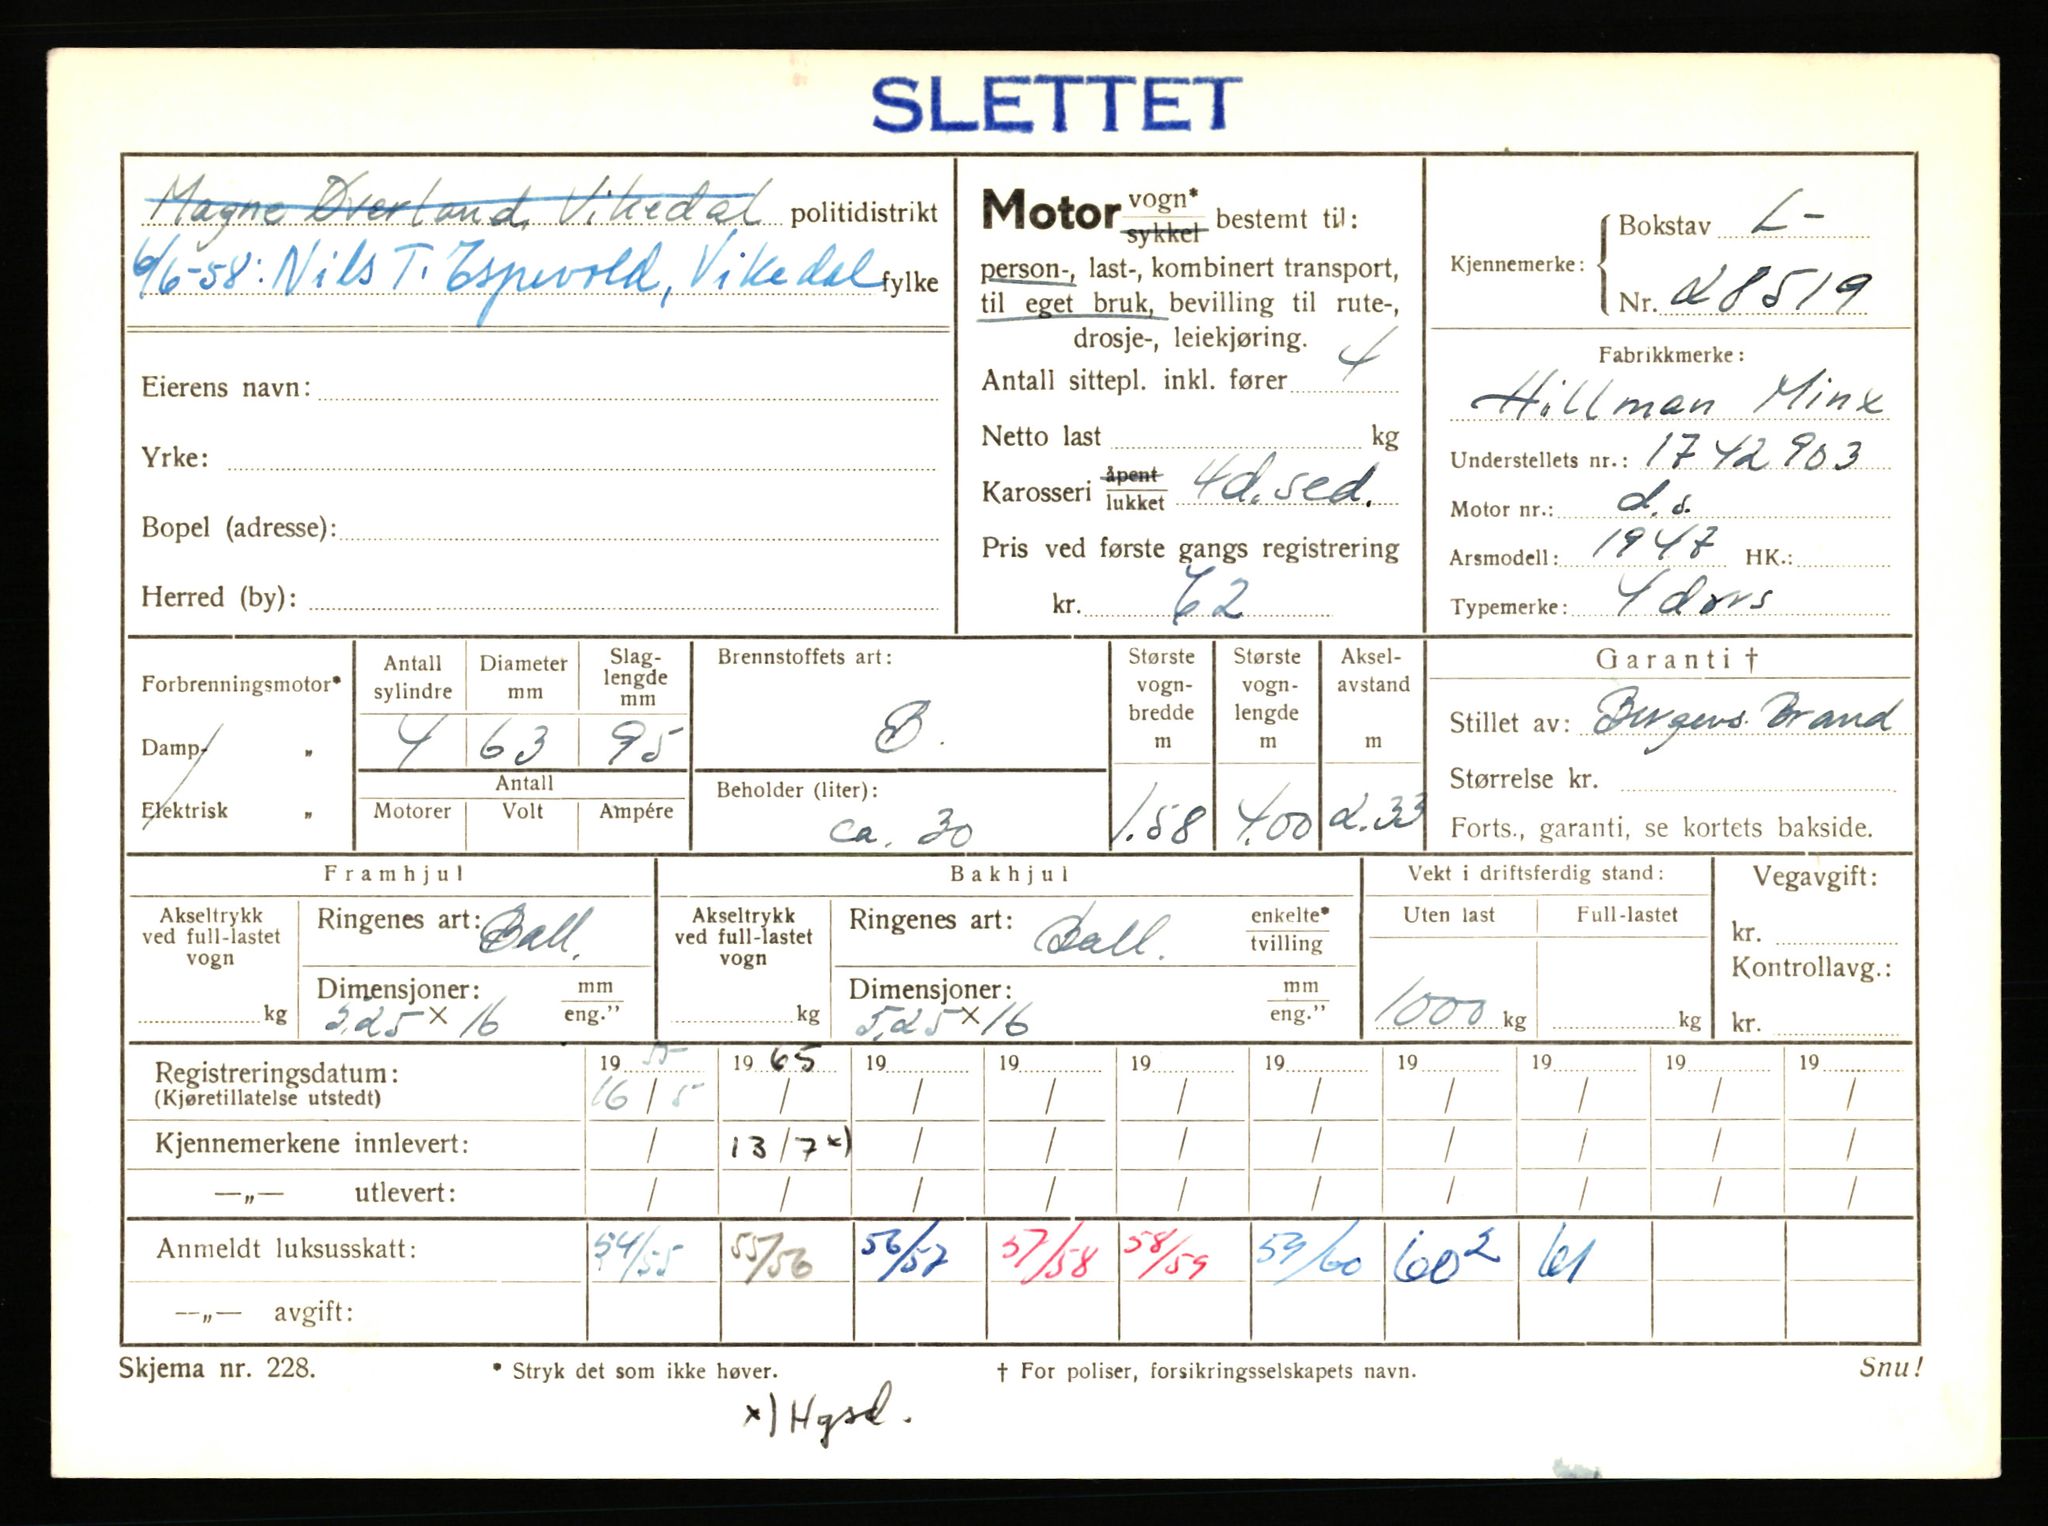 SLETTET
Magne Øverland, Vikedal politidistrikt
6/6-58: Nils T. Espevold, Vikedal fylke
Eierens navn:
Yrke:
Bopel (adresse):
Herred (by):
Motor vogn* sykkel bestemt til:
person-, last-, kombinert transport,
til eget bruk, bevilling til rute-,
drosje-, leiekjøring.
Antall sittepl. inkl. fører 4
Netto last kg
Karosseri åpent lukket 4d. sed.
Pris ved første gangs registrering
kr. 62
Kjennemerke: Bokstav L-
Nr. 28519
Fabrikkmerke:
Hillman Minx
Understellets nr.: 1742903
Motor nr.: d.s.
Årsmodell: 1947 HK.:
Typemerke: 4 dørs
Forbrenningsmotor*
Damp- „
Elektrisk „
Antall sylindre 4
Diameter mm 63
Slag-lengde mm 95
Antall
Motorer Volt Ampére
Brennstoffets art:
B.
Beholder (liter):
ca. 30
Største vogn-bredde m 1.58
Største vogn-lengde m 4.00
Aksel-avstand m 2.33
Garanti †
Stillet av: Bergens Brand
Størrelse kr.
Forts., garanti, se kortets bakside.
Framhjul
Akseltrykk ved full-lastet vogn
kg
Ringenes art: Ball.
Dimensjoner: mm eng.”
5,25 x 16
Bakhjul
Akseltrykk ved full-lastet vogn
kg
Ringenes art: Ball. enkelte* tvilling
Dimensjoner: mm eng.”
5,25 x 16
Vekt i driftsferdig stand:
Uten last Full-lastet
1000 kg kg
Vegavgift:
kr.
Kontrollavg.:
kr.
Registreringsdatum: 19 55 19 65 19 19 19 19 19 19 19 19
(Kjøretillatelse utstedt) 16 / 5 / / / / / / / / /
Kjennemerkene innlevert: / 13 / 7 x) / / / / / / / /
—„— utlevert: / / / / / / / / / /
Anmeldt luksusskatt: 54/55 55/56 56/57 57/58 58/59 59/60 60² 61
—„— avgift:
Skjema nr. 228. * Stryk det som ikke høver. † For poliser, forsikringsselskapets navn. Snu!
x) Hgsd.